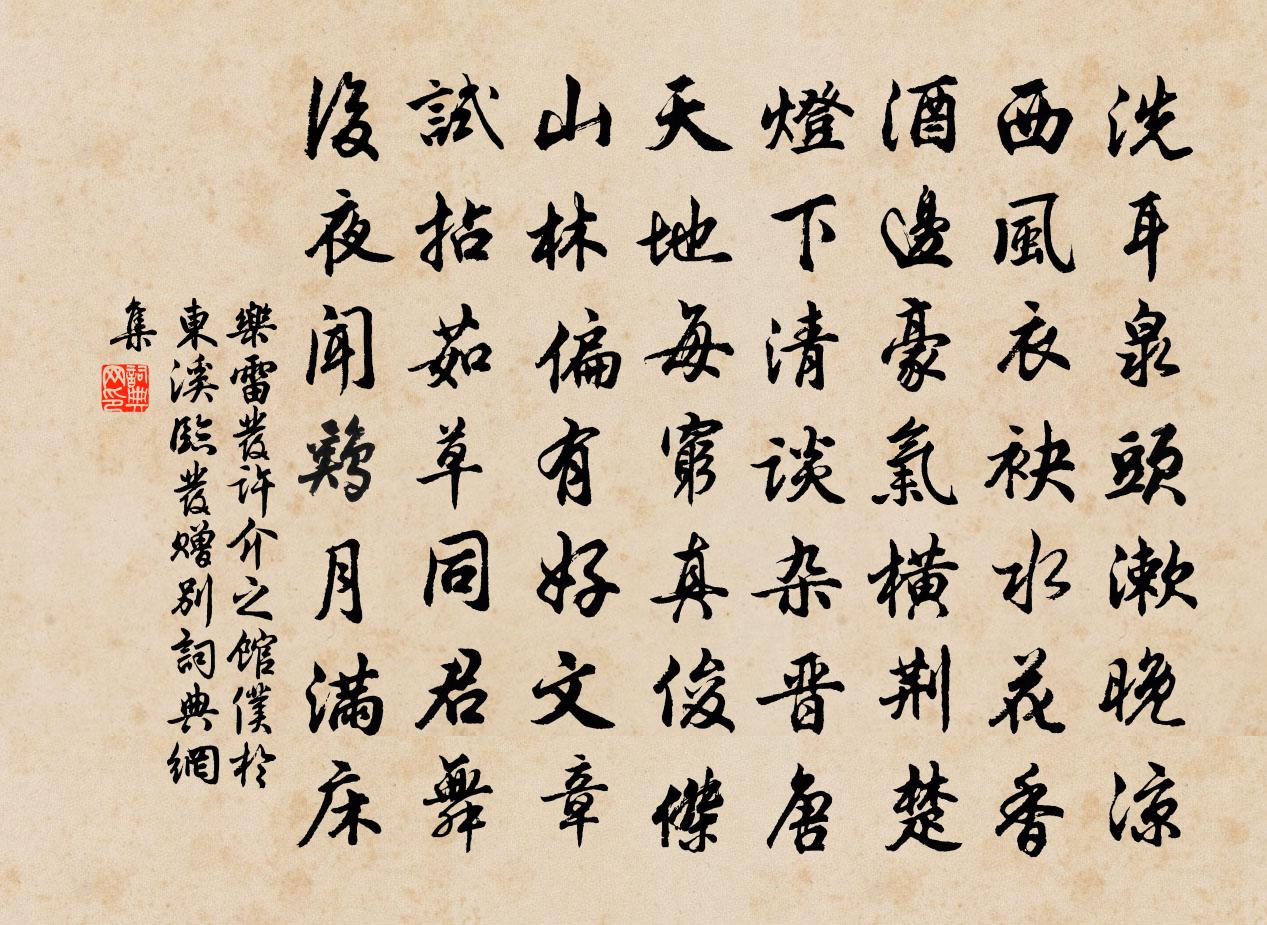 洗耳泉頭漱晚涼
西風衣袂水花香
酒邊豪氣橫荆楚
燈下清談杂晋唐
天地每窮真俊傑
山林偏有好文章
試拈茹草同君舞
後夜聞鷄月滿床
樂雷發許介之館僕於
東溪臨發贈别詞典網
集
詞典网印